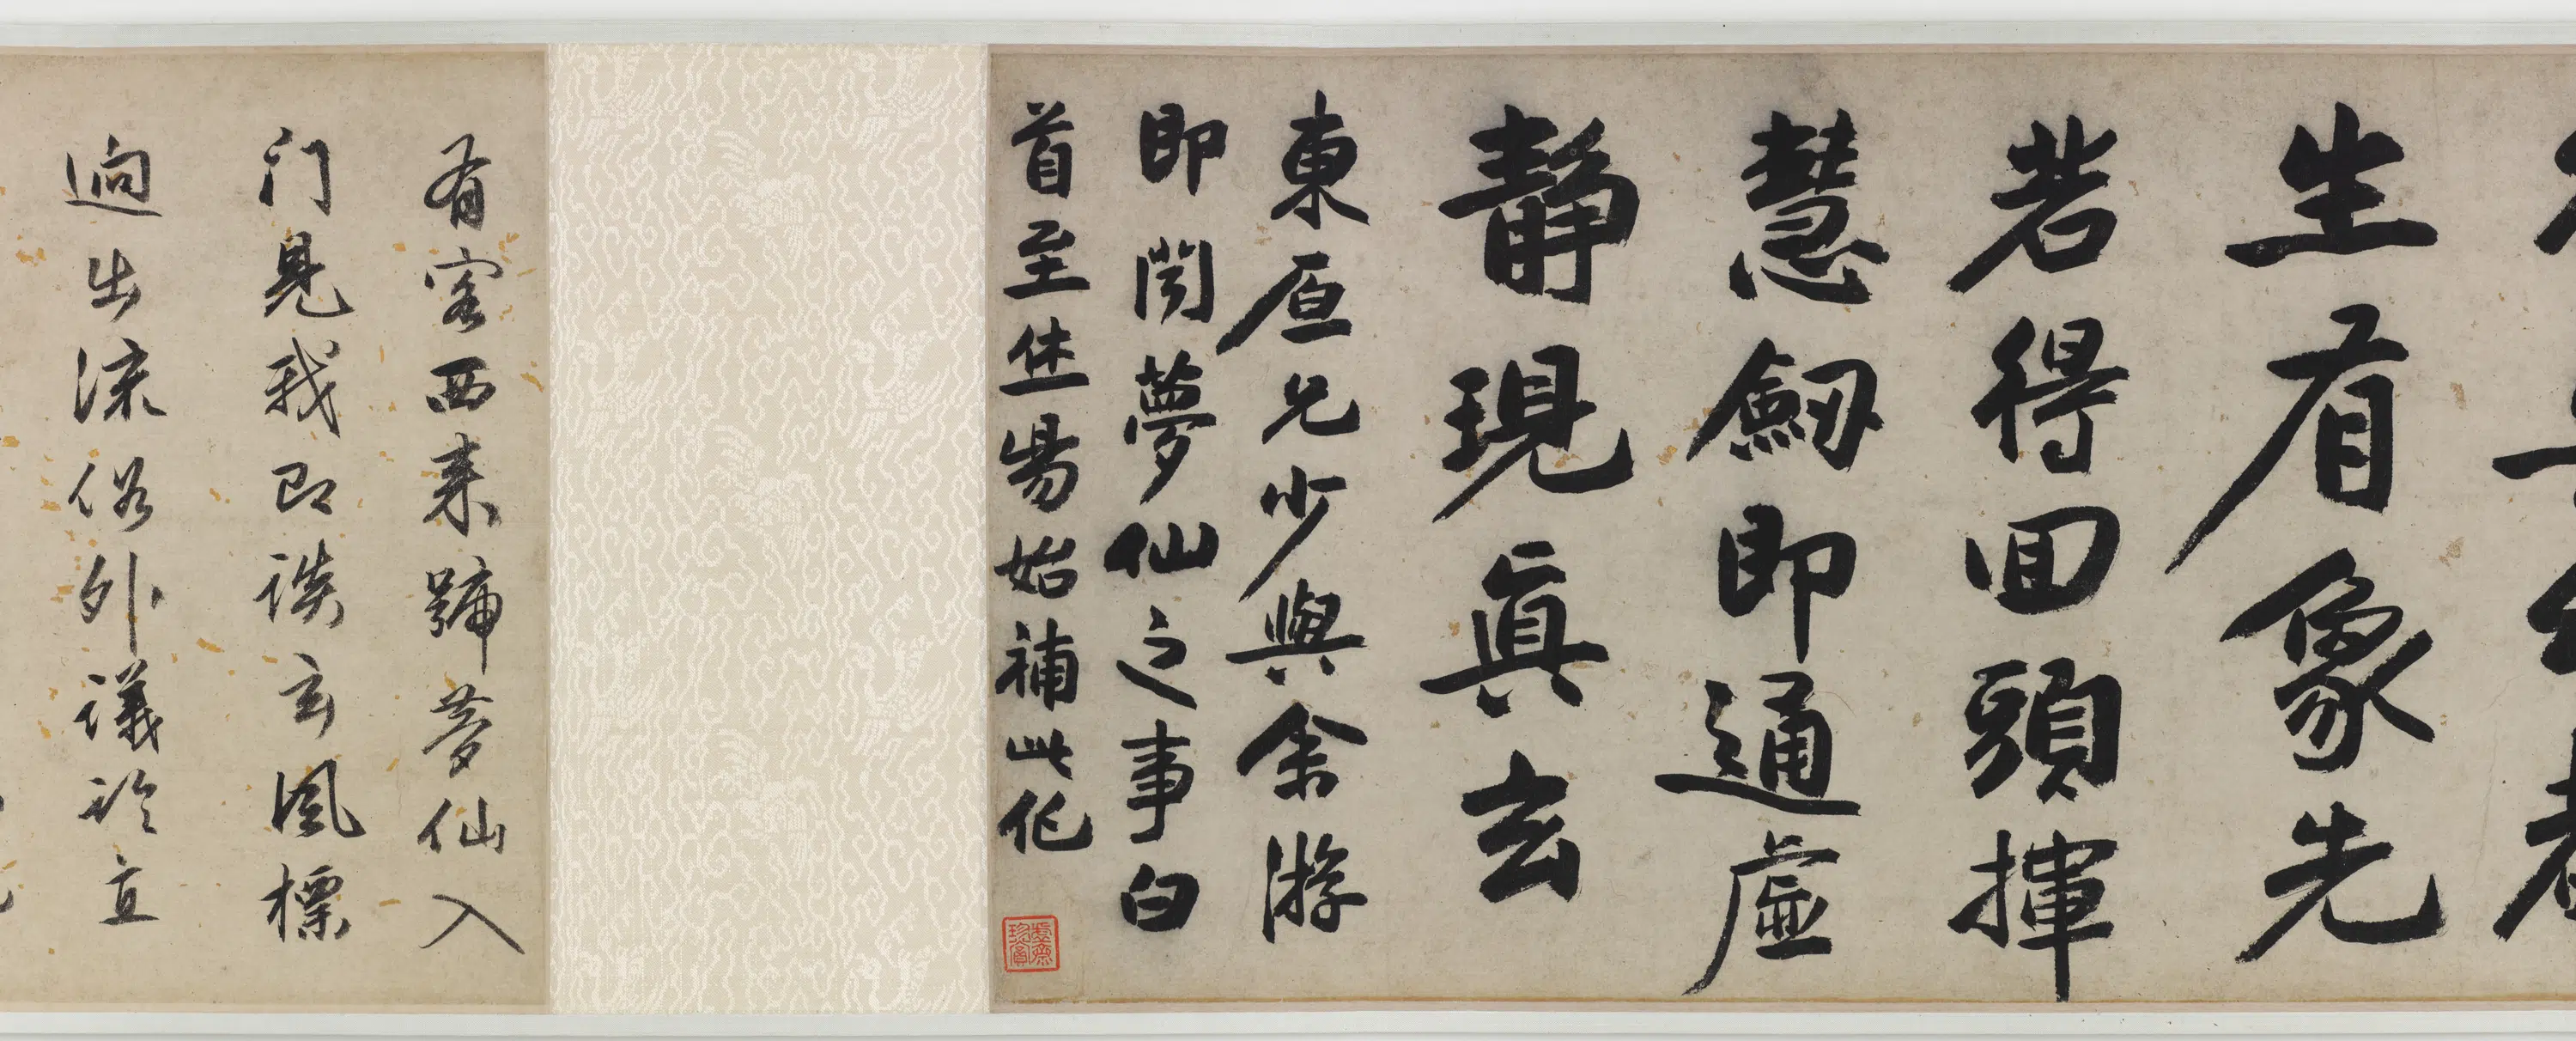 生有象先
若得回頭揮
慧劒即通虛
靜現真玄
東原兄少與余游
即聞夢仙之事白
首至此始補此作
有客西来號夢仙入
门見我即談玄風標
逈出流俗外議論立